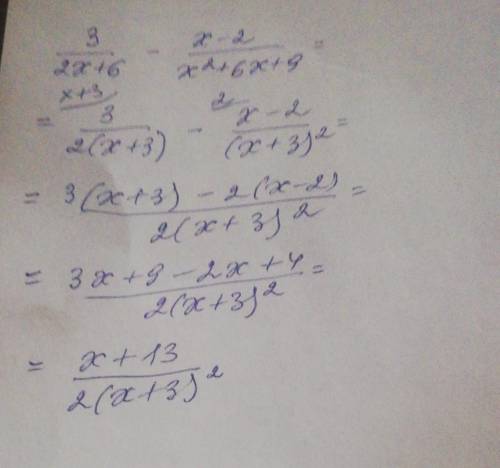 3/(2x+6) - (x-2)/(x²+6x+9) =
= 3/(2(x+3)) (x+3 - (x-2)/(x+3)² (2 =
= (3(x+3) - 2(x-2))/(2(x+3)²) =
= (3x+9-2x+4)/(2(x+3)²) =
= (x+13)/(2(x+3)²)